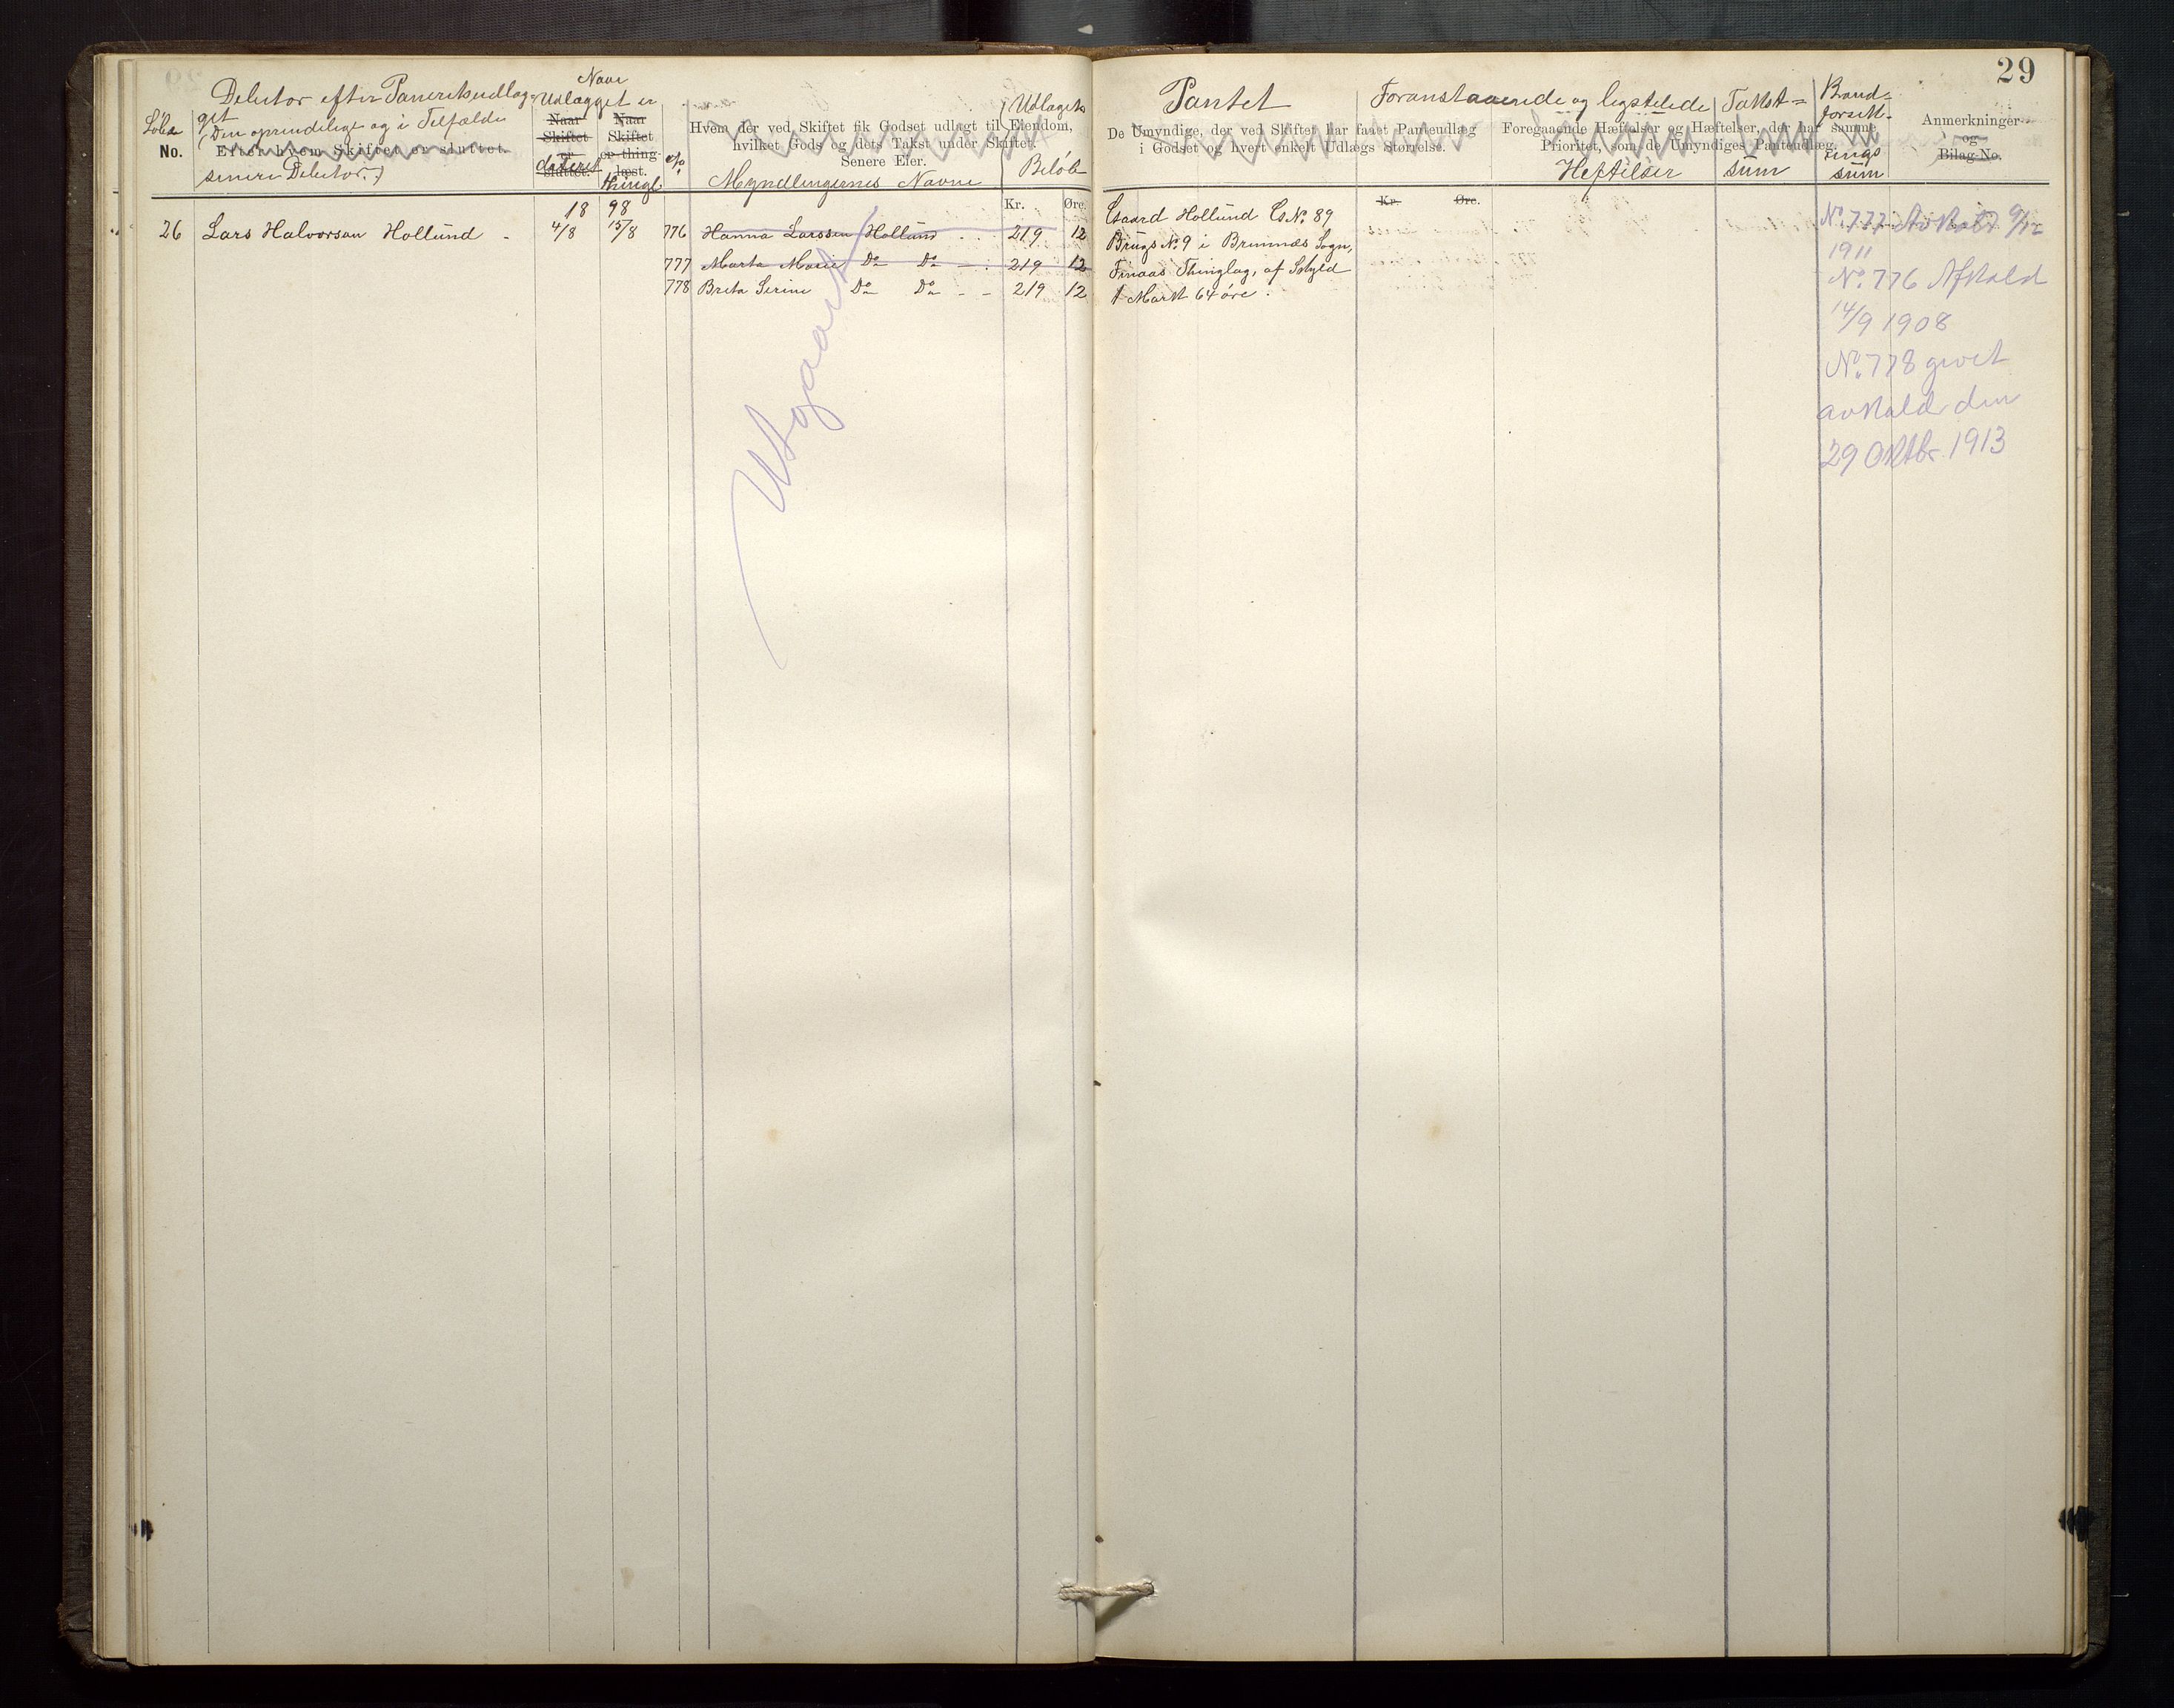 29
Debitor efter Panteudlæg-
get
(Den oprindelige og i Tilfælde
Efter hvem Skiftet er sluttet.
senere Debitor.)
Løbe
No.
Naar
Udlægget er
Naar
Skiftet
er
sluttet.
dateret
Naar
Skiftet
er thing-
læst.
thingl
Hvem der ved Skiftet fik Godset udlagt til Eiendom,
hvilket Gods og dets Takst under Skiftet.
Senere Eier.
Myndlingernes Navne
Udlægets
Beløb
Kr. Øre.
Pantet
De Umyndige, der ved Skiftet har faaet Panteudlæg
i Godset og hvert enkelt Udlægs Størrelse.
Kr. Øre.
Foranstaaende og ligestillede
Foregaaende Hæftelser og Hæftelser, der har samme
Prioritet, som de Umyndiges Panteudlæg.
Heftelser
Takst-
sum
Brand-
forsik-
rings
sum
Anmerkninger
og
Bilag-No.
18 98
26 Lars Halvorsen Hollund - 4/8 15/8 776 Hanna Larssen Hollund 219 12
777 Marta Marie Do Do 219 12
778 Breta Serine Do Do 219 12
Gaard Hollund G.No. 89
Brugs No. 9 i Bremnæs Sogn,
Finaas Thinglag, af Skyld
1 Mark 64 øre.
Utgaart
No. 777 Avkald 9/12
1911
No. 776 Afkald
14/9 1908
No. 778 givet
avkald den
29 Oktbr. 1913